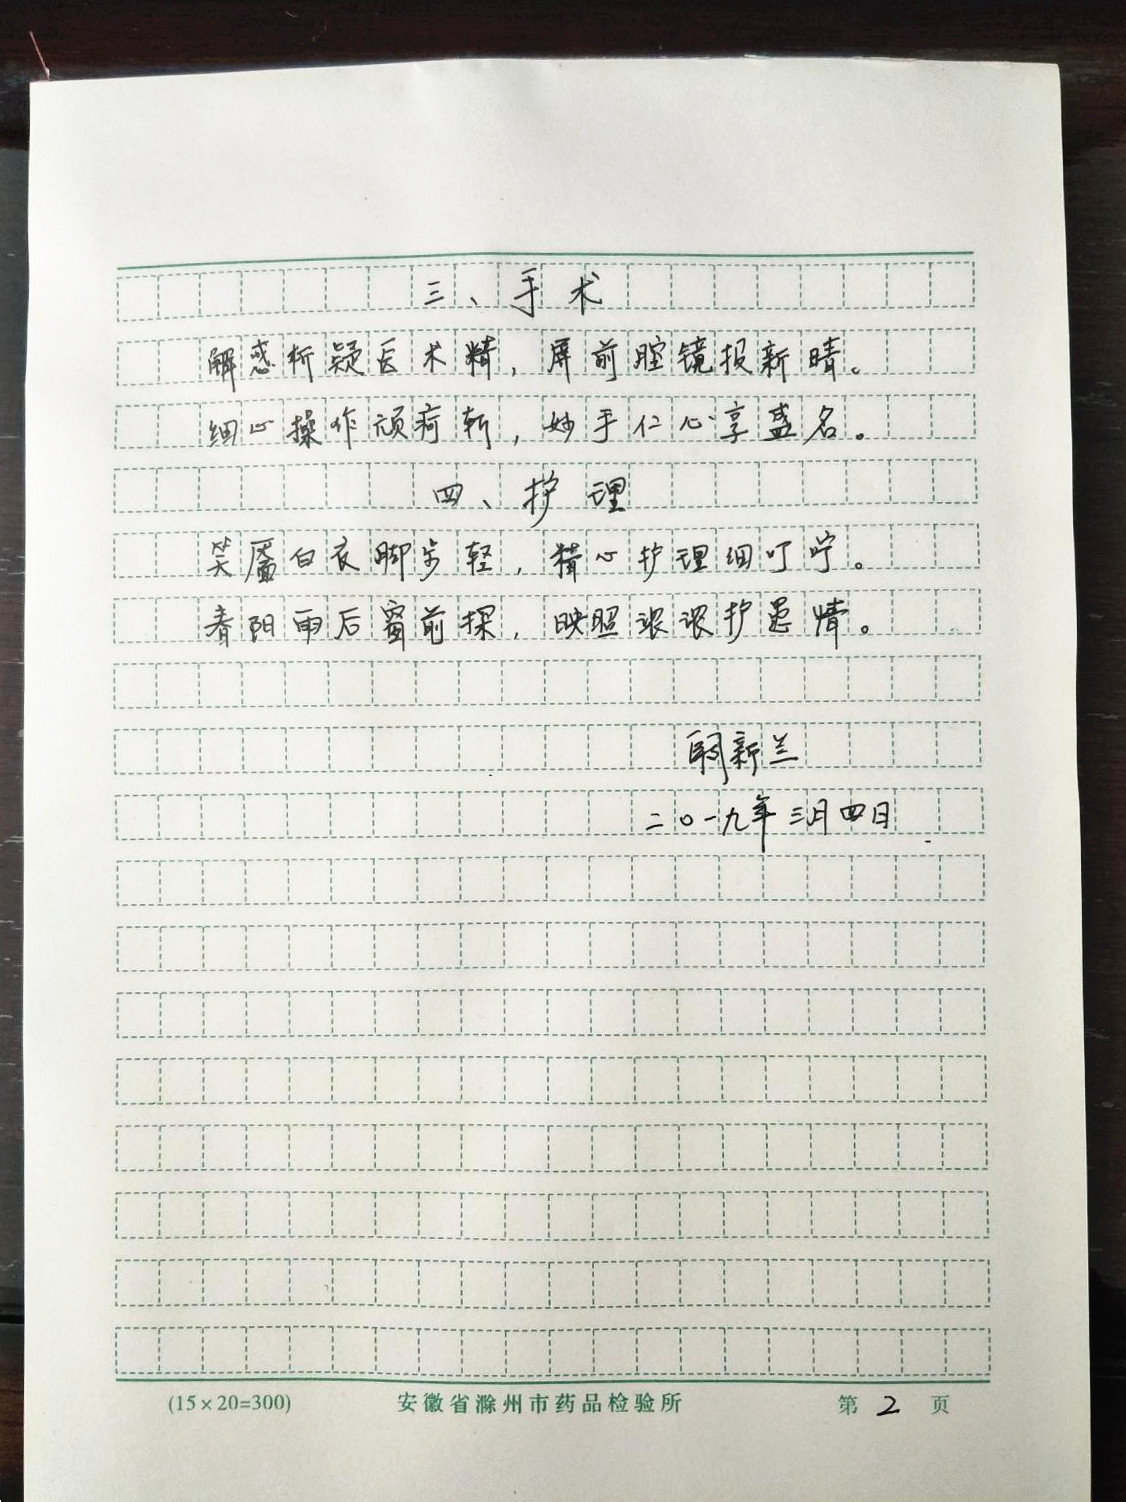 三、手术
解惑析疑医术精,屏前腔镜报新晴。
细心操作顽疴斩,妙手仁心享盛名。
四、护理
笑靥白衣脚步轻,精心护理细叮咛。
春阳雨后窗前探,映照浓浓护患情。
新兰
二〇一九年三月四日
(15×20=300) 安徽省滁州市药品检验所 第 2 页